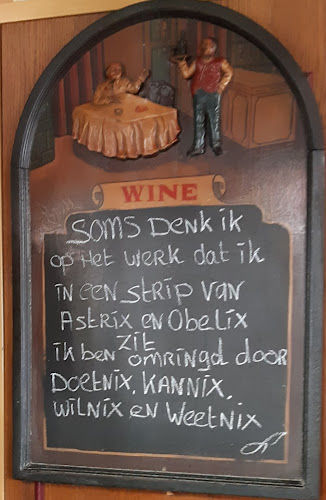 WINE
SOMS DENK IK
OP HET WERK DAT IK
IN EEN STRIP VAN
ASTRIX EN OBELIX
ZIT
IK BEN OMRINGD DOOR
DOETNIX, KANNIX,
WILNIX EN WEETNIX